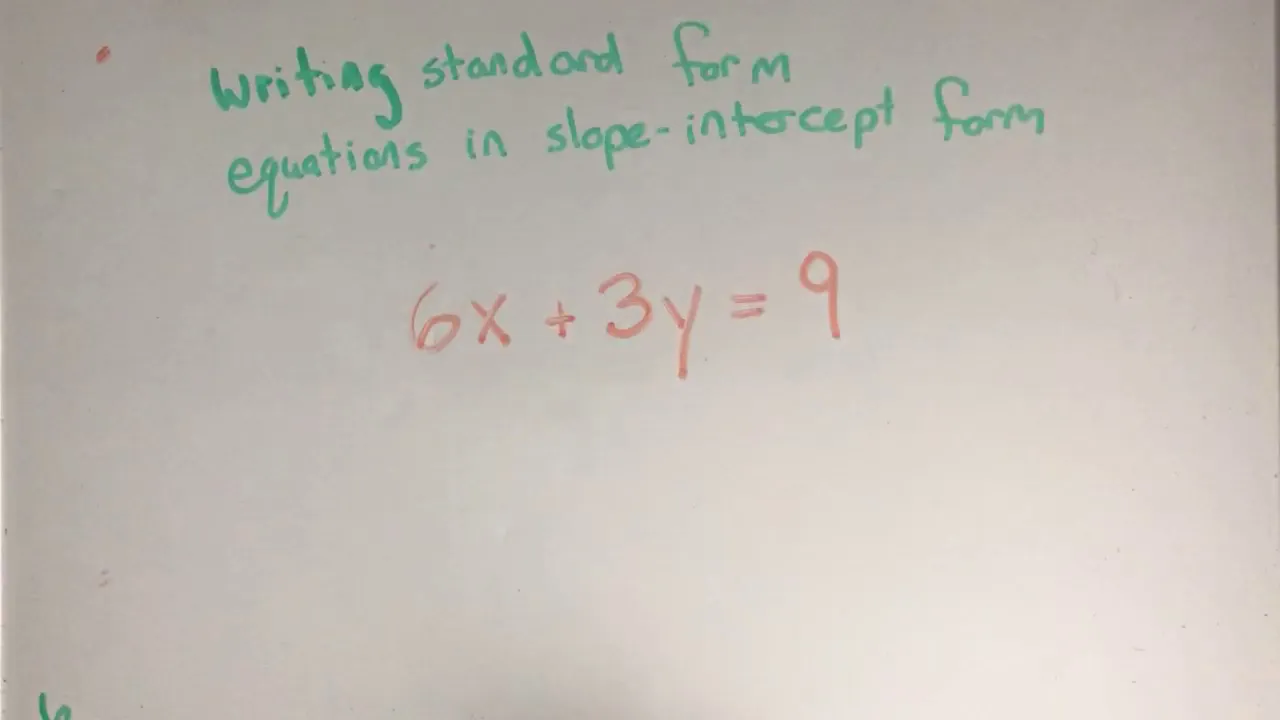 Writing standard form
equations in slope-intercept form
6x + 3y = 9